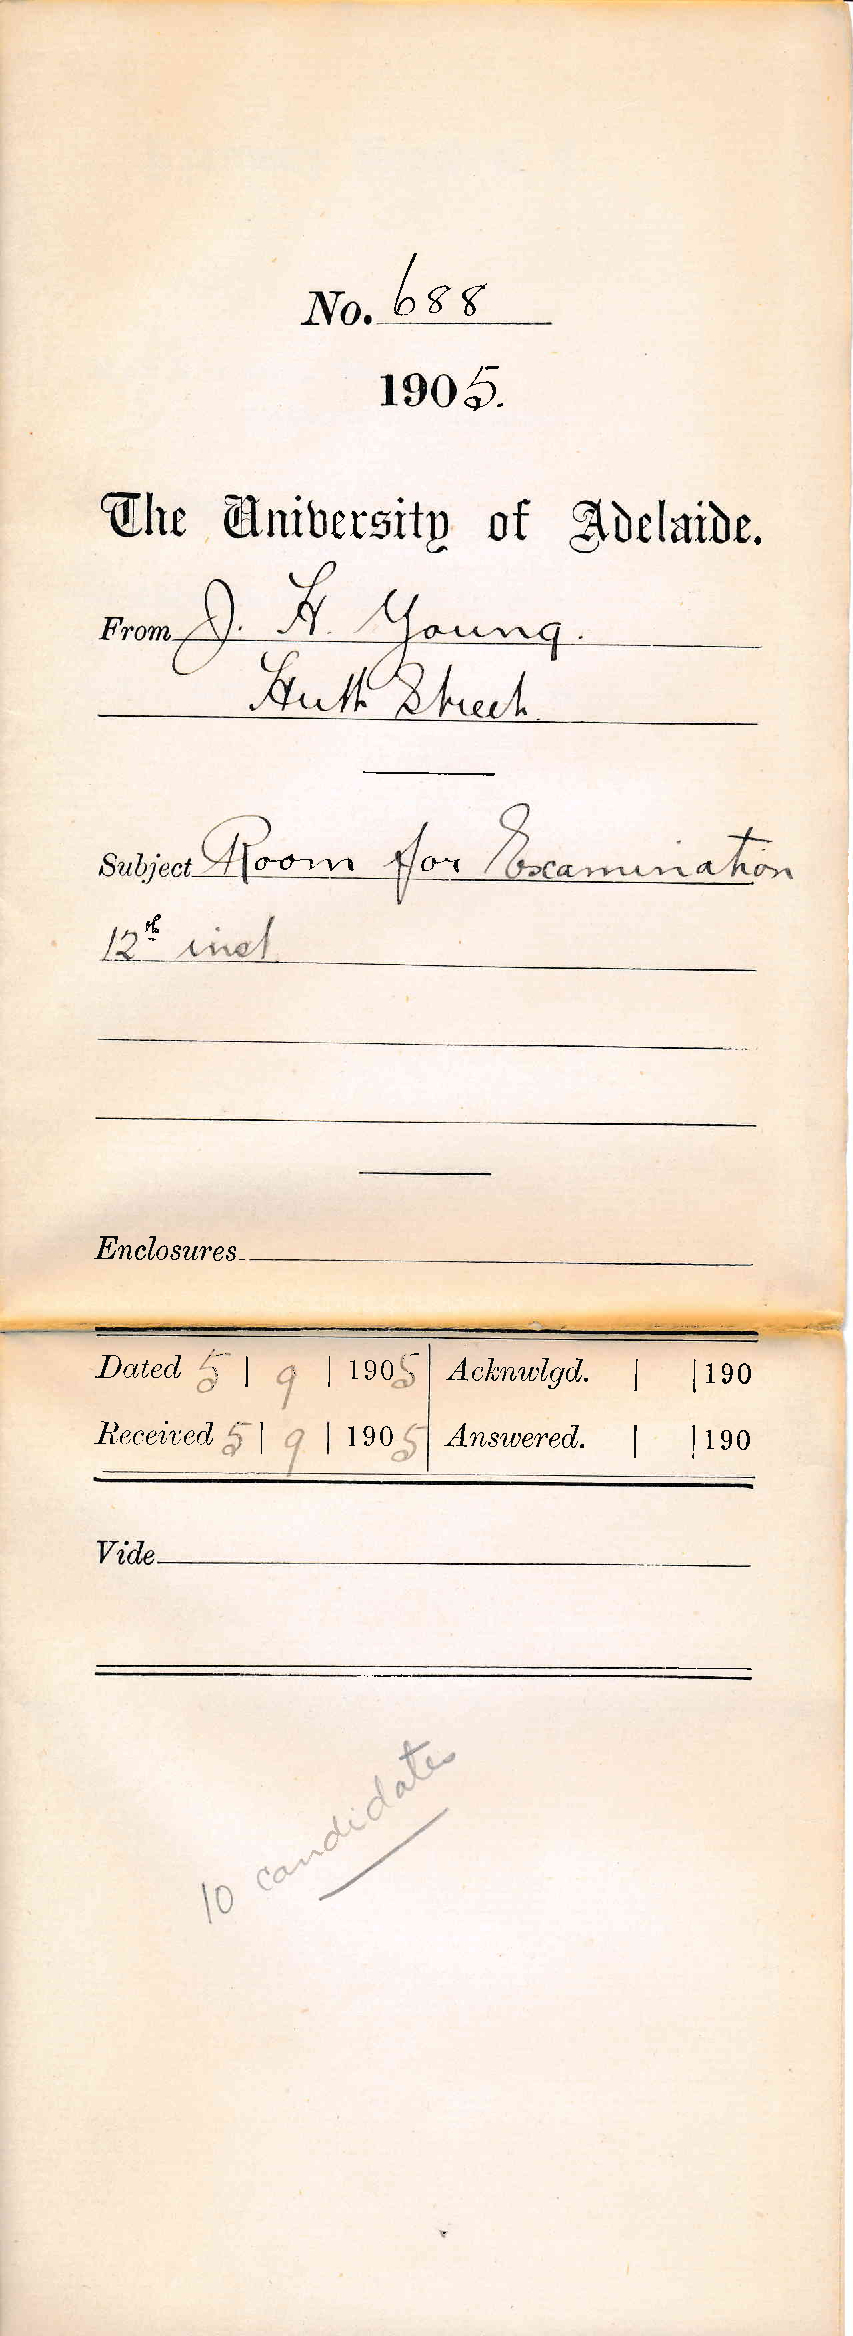 No. 688
1905.
The University of Adelaide.
From J. H. Young.
Hutt Street
Subject Room for Examination
12th inst
Enclosures
Dated 5 | 9 | 1905 Acknwlgd. | | 190
Received 5 | 9 | 1905 Answered. | | 190
Vide
10 candidates